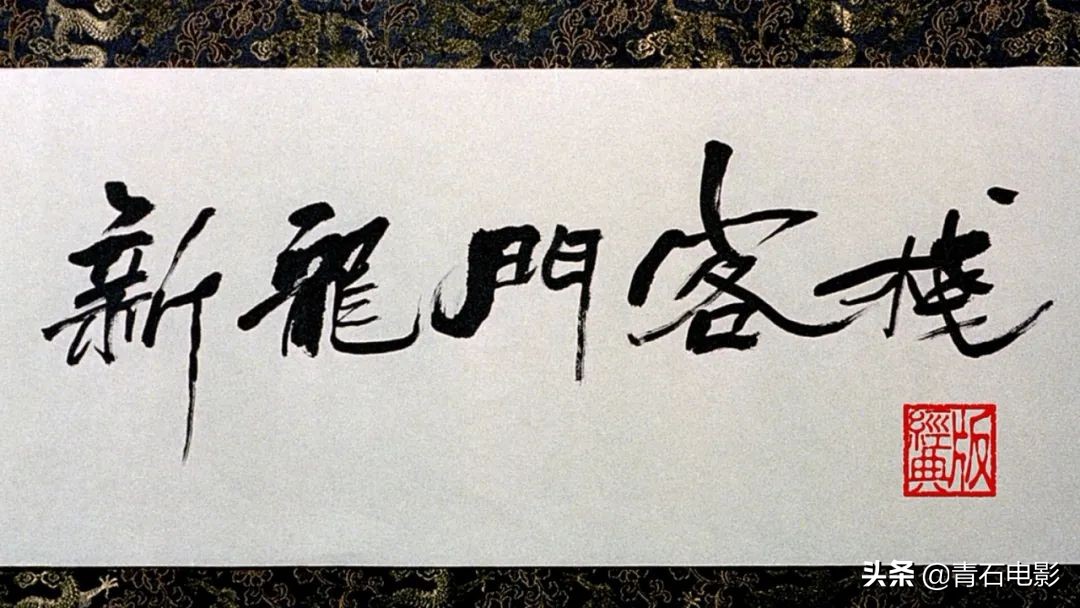 新龍門客栈
經典版
头条 @青石电影